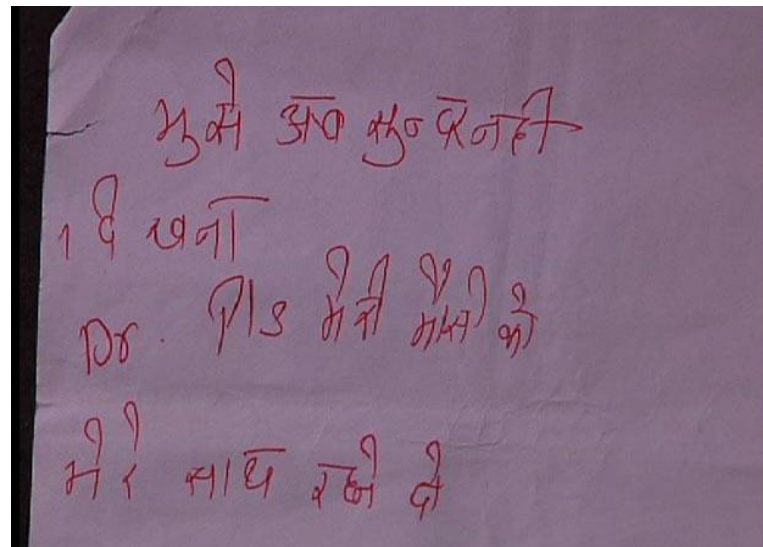 मुझे अब सुन्दर नही
दिखना
Dr. Pls मेरी मौसी को
मेरे साथ रहने दो